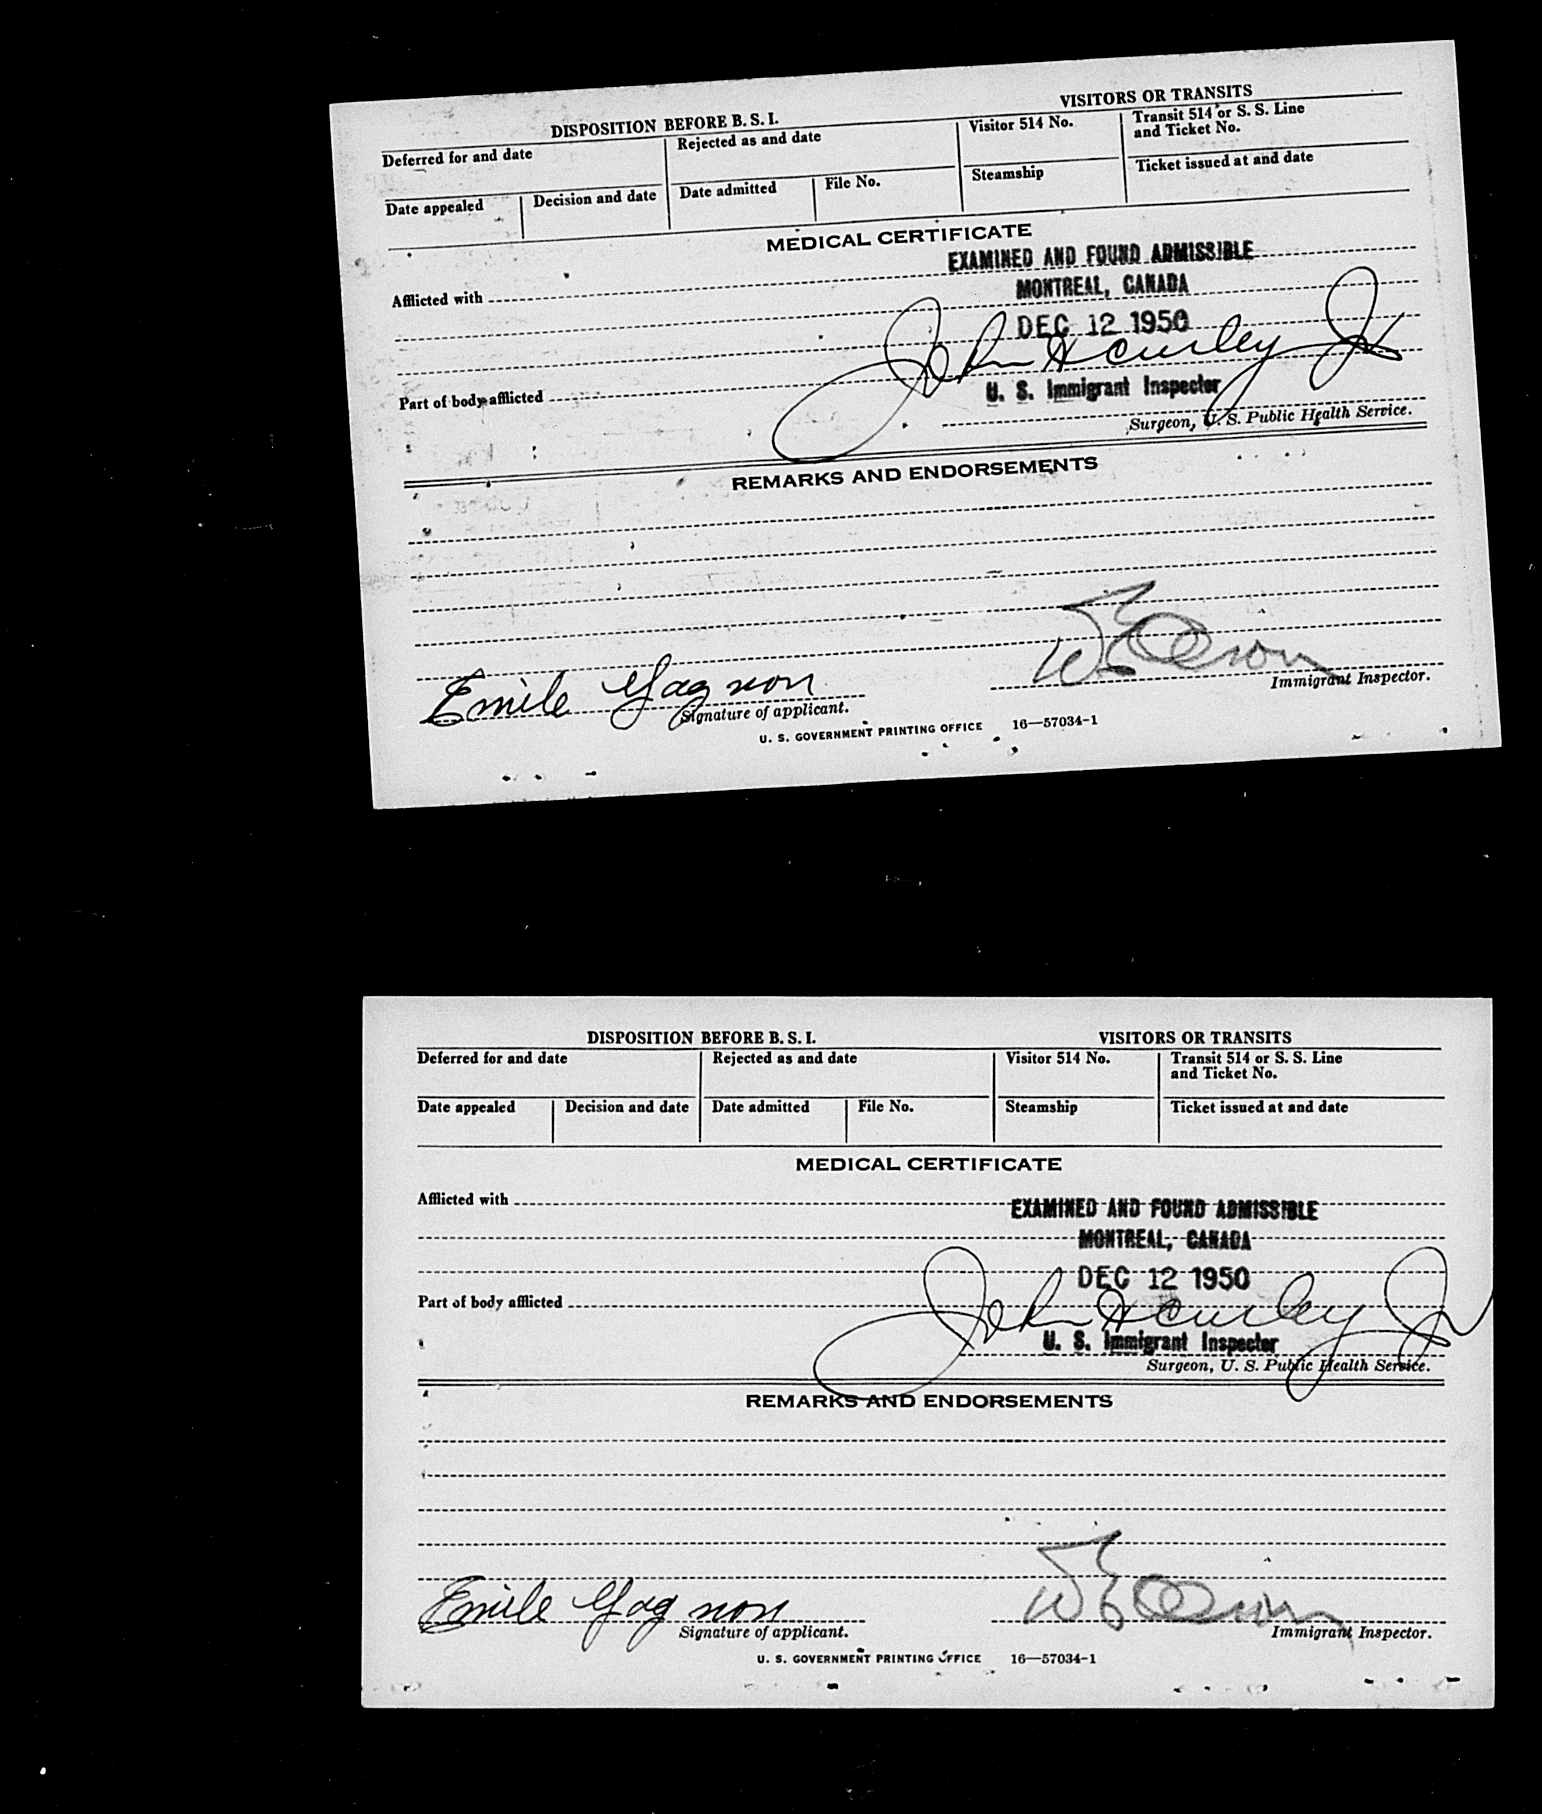 DISPOSITION BEFORE B. S. I. VISITORS OR TRANSITS
Deferred for and date Rejected as and date Visitor 514 No. Transit 514 or S. S. Line
and Ticket No.
Date appealed Decision and date Date admitted File No. Steamship Ticket issued at and date
MEDICAL CERTIFICATE
EXAMINED AND FOUND ADMISSIBLE
Afflicted with
MONTREAL, CANADA
DEC 12 1950
John H Curley Jr
Part of body afflicted
U. S. Immigrant Inspector
Surgeon, U. S. Public Health Service.
REMARKS AND ENDORSEMENTS
Emile Gagnon
Signature of applicant. Immigrant Inspector.
U. S. GOVERNMENT PRINTING OFFICE 16—57034-1
DISPOSITION BEFORE B. S. I. VISITORS OR TRANSITS
Deferred for and date Rejected as and date Visitor 514 No. Transit 514 or S. S. Line
and Ticket No.
Date appealed Decision and date Date admitted File No. Steamship Ticket issued at and date
MEDICAL CERTIFICATE
Afflicted with
EXAMINED AND FOUND ADMISSIBLE
MONTREAL, CANADA
DEC 12 1950
Part of body afflicted
John H Curley Jr
U. S. Immigrant Inspector
Surgeon, U. S. Public Health Service.
REMARKS AND ENDORSEMENTS
Emile Gagnon
Signature of applicant. Immigrant Inspector.
U. S. GOVERNMENT PRINTING OFFICE 16—57034-1